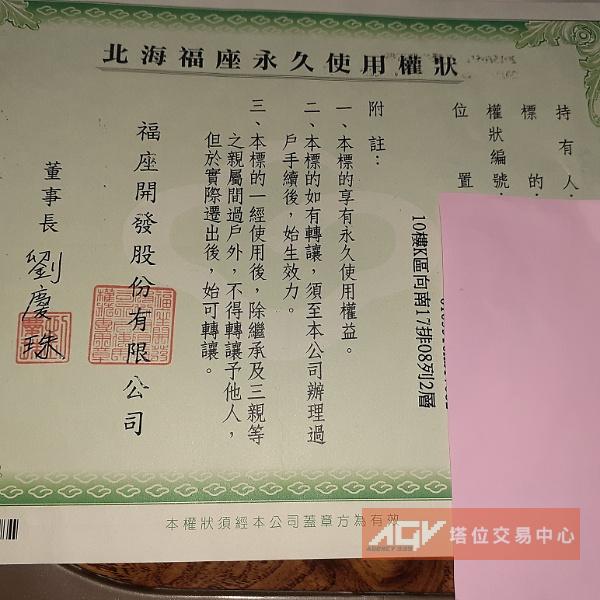 北海福座永久使用權狀
持有人：
權狀編號：
標的
位置
10樓K區向南17排08列2層
附註：
一、本標的享有永久使用權益。
二、本標的如有轉讓，須至本公司辦理過
戶手續後，始生效力。
三、本標的一經使用後，除繼承及三親等
之親屬間過戶外，不得轉讓予他人，
但於實際遷出後，始可轉讓。
福座開發股份有限公司
董事長 劉慶珠
本權狀須經本公司蓋章方為有效
AGV 塔位交易中心